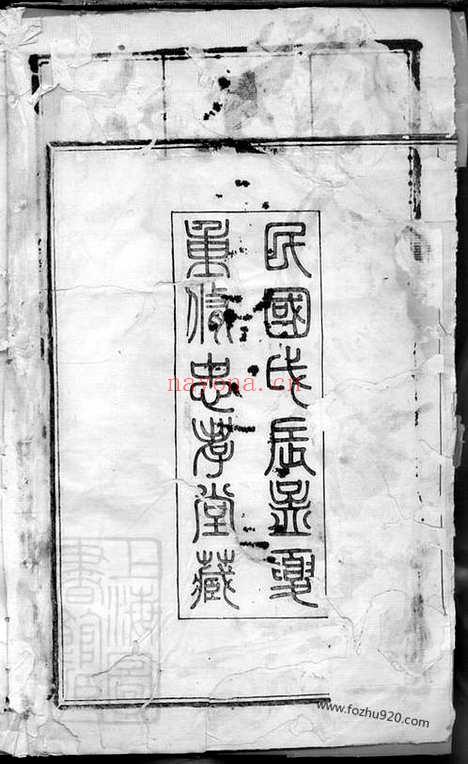 民國戊辰孟夏
重修忠孝堂藏
nayona.cn
上海圖書館藏
www.fozhu920.com